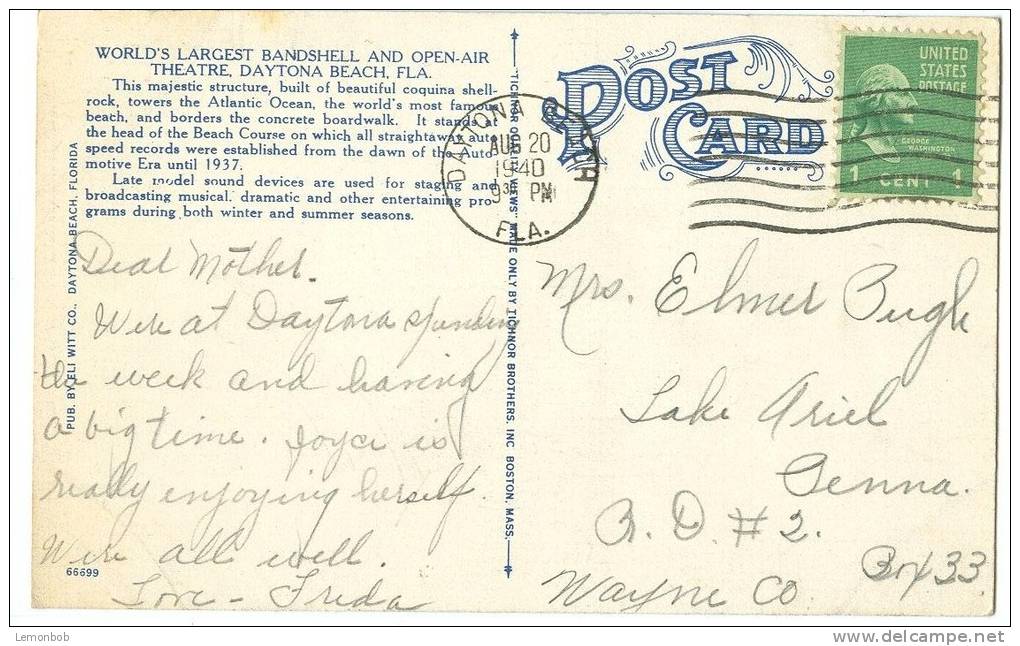 WORLD'S LARGEST BANDSHELL AND OPEN-AIR
THEATRE, DAYTONA BEACH, FLA.
This majestic structure, built of beautiful coquina shell-
rock, towers the Atlantic Ocean, the world's most famous
beach, and borders the concrete boardwalk. It stands at
the head of the Beach Course on which all straightaway auto
speed records were established from the dawn of the Auto-
motive Era until 1937.
Late model sound devices are used for staging and
broadcasting musical, dramatic and other entertaining pro-
grams during both winter and summer seasons.
PUB. BY ELI WITT CO., DAYTONA BEACH, FLORIDA
66699
"TICHNOR QUALITY VIEWS" MADE ONLY BY TICHNOR BROTHERS, INC BOSTON, MASS.
POST
CARD
DAYTONA BEACH
AUG 20
1940
9 30 PM
FLA.
UNITED
STATES
POSTAGE
GEORGE
WASHINGTON
1 CENT 1
Dear Mother.
Were at Daytona spending
the week and having
a big time. Joyce is
really enjoying herself.
Were all well.
Love - Freda
Mrs. Elmer Pugh
Lake Ariel
Penna.
R. D. # 2.
Box 33
Wayne Co
Lemonbob
www.delcampe.net